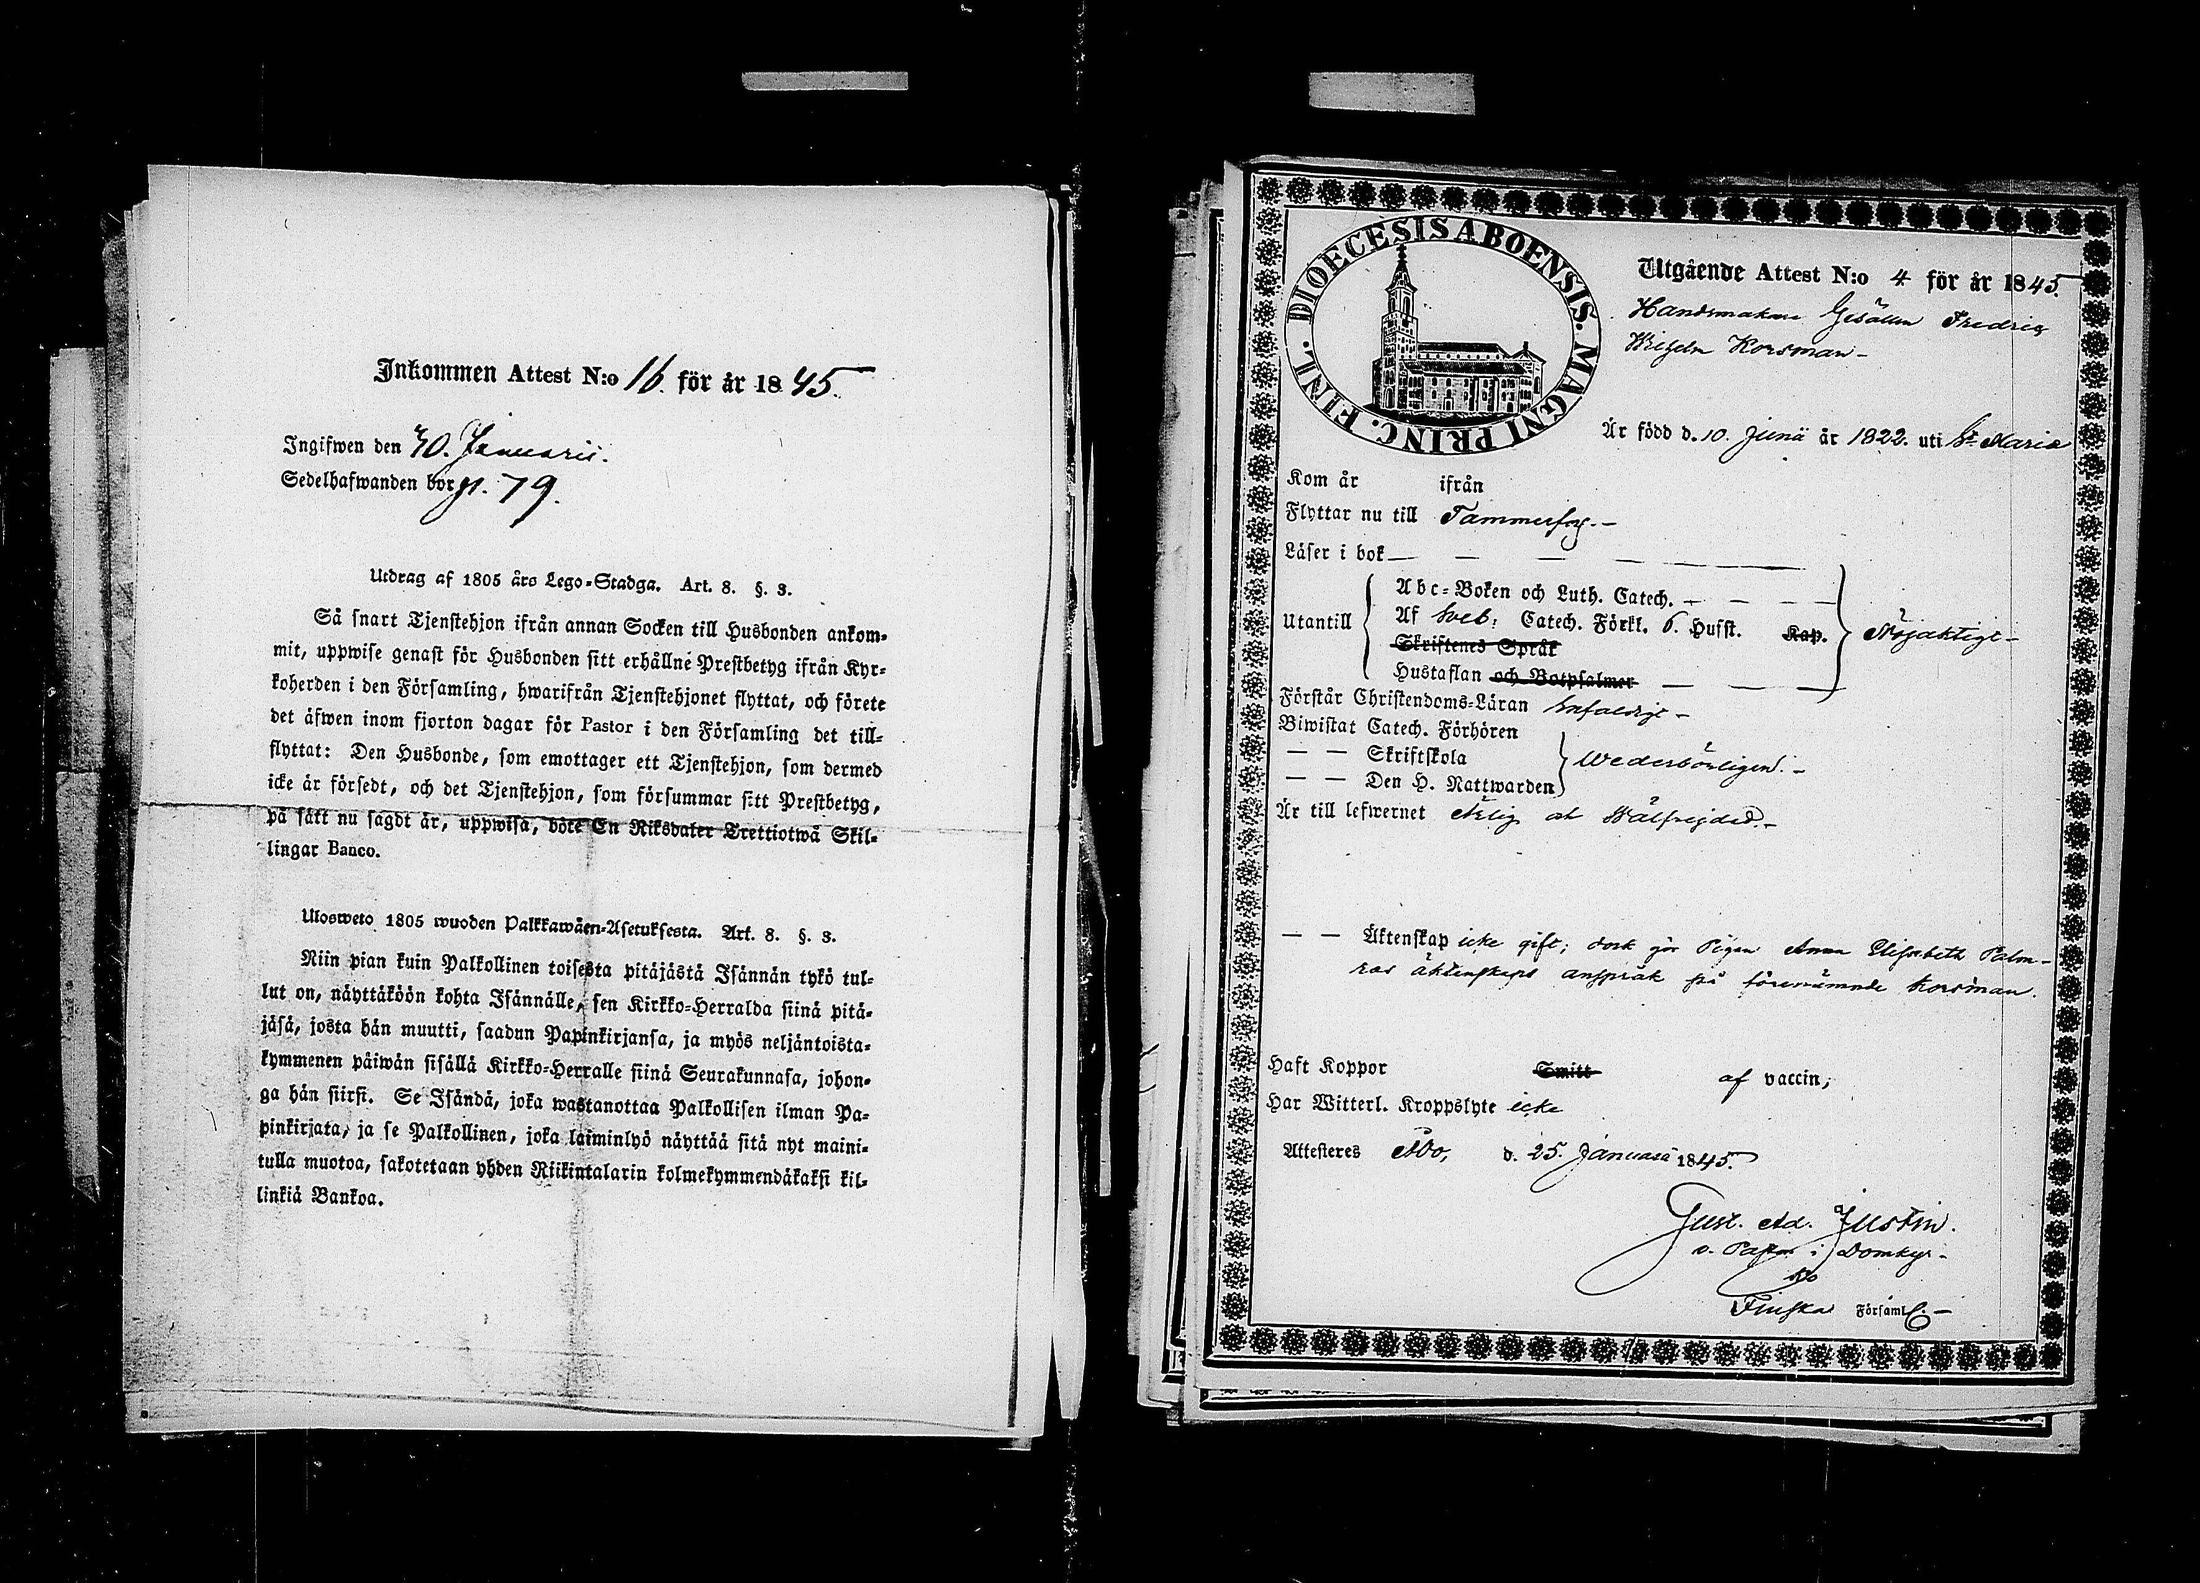 Inkommen Attest N:o 16. för år 1845.
Ingifwen den 30. Januarii.
Sedelhafwanden bor gl. 79.
Utdrag af 1805 års Lego-Stadga. Art. 8. §. 3.
Så snart Tjenstehjon ifrån annan Socken till Husbonden ankom-
mit, uppwise genast för Husbonden sitt erhållne Prestbetyg ifrån Kyr-
koherden i den Församling, hwarifrån Tjenstehjonet flyttat, och förete
det äfwen inom fjorton dagar för Pastor i den Församling det till-
flyttat: Den Husbonde, som emottager ett Tjenstehjon, som dermed
icke är försedt, och det Tjenstehjon, som försummar sitt Prestbetyg,
på sätt nu sagdt är, uppwisa, böte En Riksdaler Trettiotwå Skil-
lingar Banco.
Ulosweto 1805 wuoden Palkkawäen-Asetuksesta. Art. 8. §. 3.
Niin pian kuin Palkollinen toisesta pitäjästä Isännän tykö tul-
lut on, näyttäköön kohta Isännälle, sen Kirkko-Herralda siinä pitä-
jäsä, josta hän muutti, saadun Papinkirjansa, ja myös neljäntoista-
kymmenen päiwän sisällä Kirkko-Herralle siinä Seurakunnasa, johon-
ga hän siirsi. Se Isändä, joka wastanottaa Palkollisen ilman Pa-
pinkirjata, ja se Palkollinen, joka laiminlyö näyttää sitä nyt maini-
tulla muotoa, sakotetaan yhden Riikintalarin kolmekymmendäkaksi kil-
linkiä Bankoa.
DIOECESIS ABOENSIS. MAGNI PRINC. FINL.
Utgående Attest N:o 4 för år 1845.
Handsmakare Gesällen Fredric
Wilhelm Korsman-
Är född d. 10. Junii år 1822. uti St Maria
Kom år ifrån
Flyttar nu till Tammerfors.-
Läser i bok
Abc-Boken och Luth. Catech.
Utantill Af Sveb. Catech. Förkl. 6. Husst. Kap. Nöjaktigt-
Skriftenes Språk
Hustaflan och Botpsalmer
Förstår Christendoms-Läran Enfaldigt-
Biwistat Catech. Förhören
— — Skriftskola Wederbörligen.-
— — Den H. Nattwarden
Är till lefwernet Ärlig och Wälfrejdad.-
— — Äktenskap icke gift; dock gör Pigan Anna Elisabeth Palm-
ros äktenskaps anspråk på förenämnde Korsman.
Haft Koppor Smitt af vaccin;
Har Witterl. Kroppslyte icke
Attesteres Åbo, d. 25. Januarii 1845.
Gust. Ad. Justin.
v. Pastor i Domkyr-
ko
Finska Församl.-